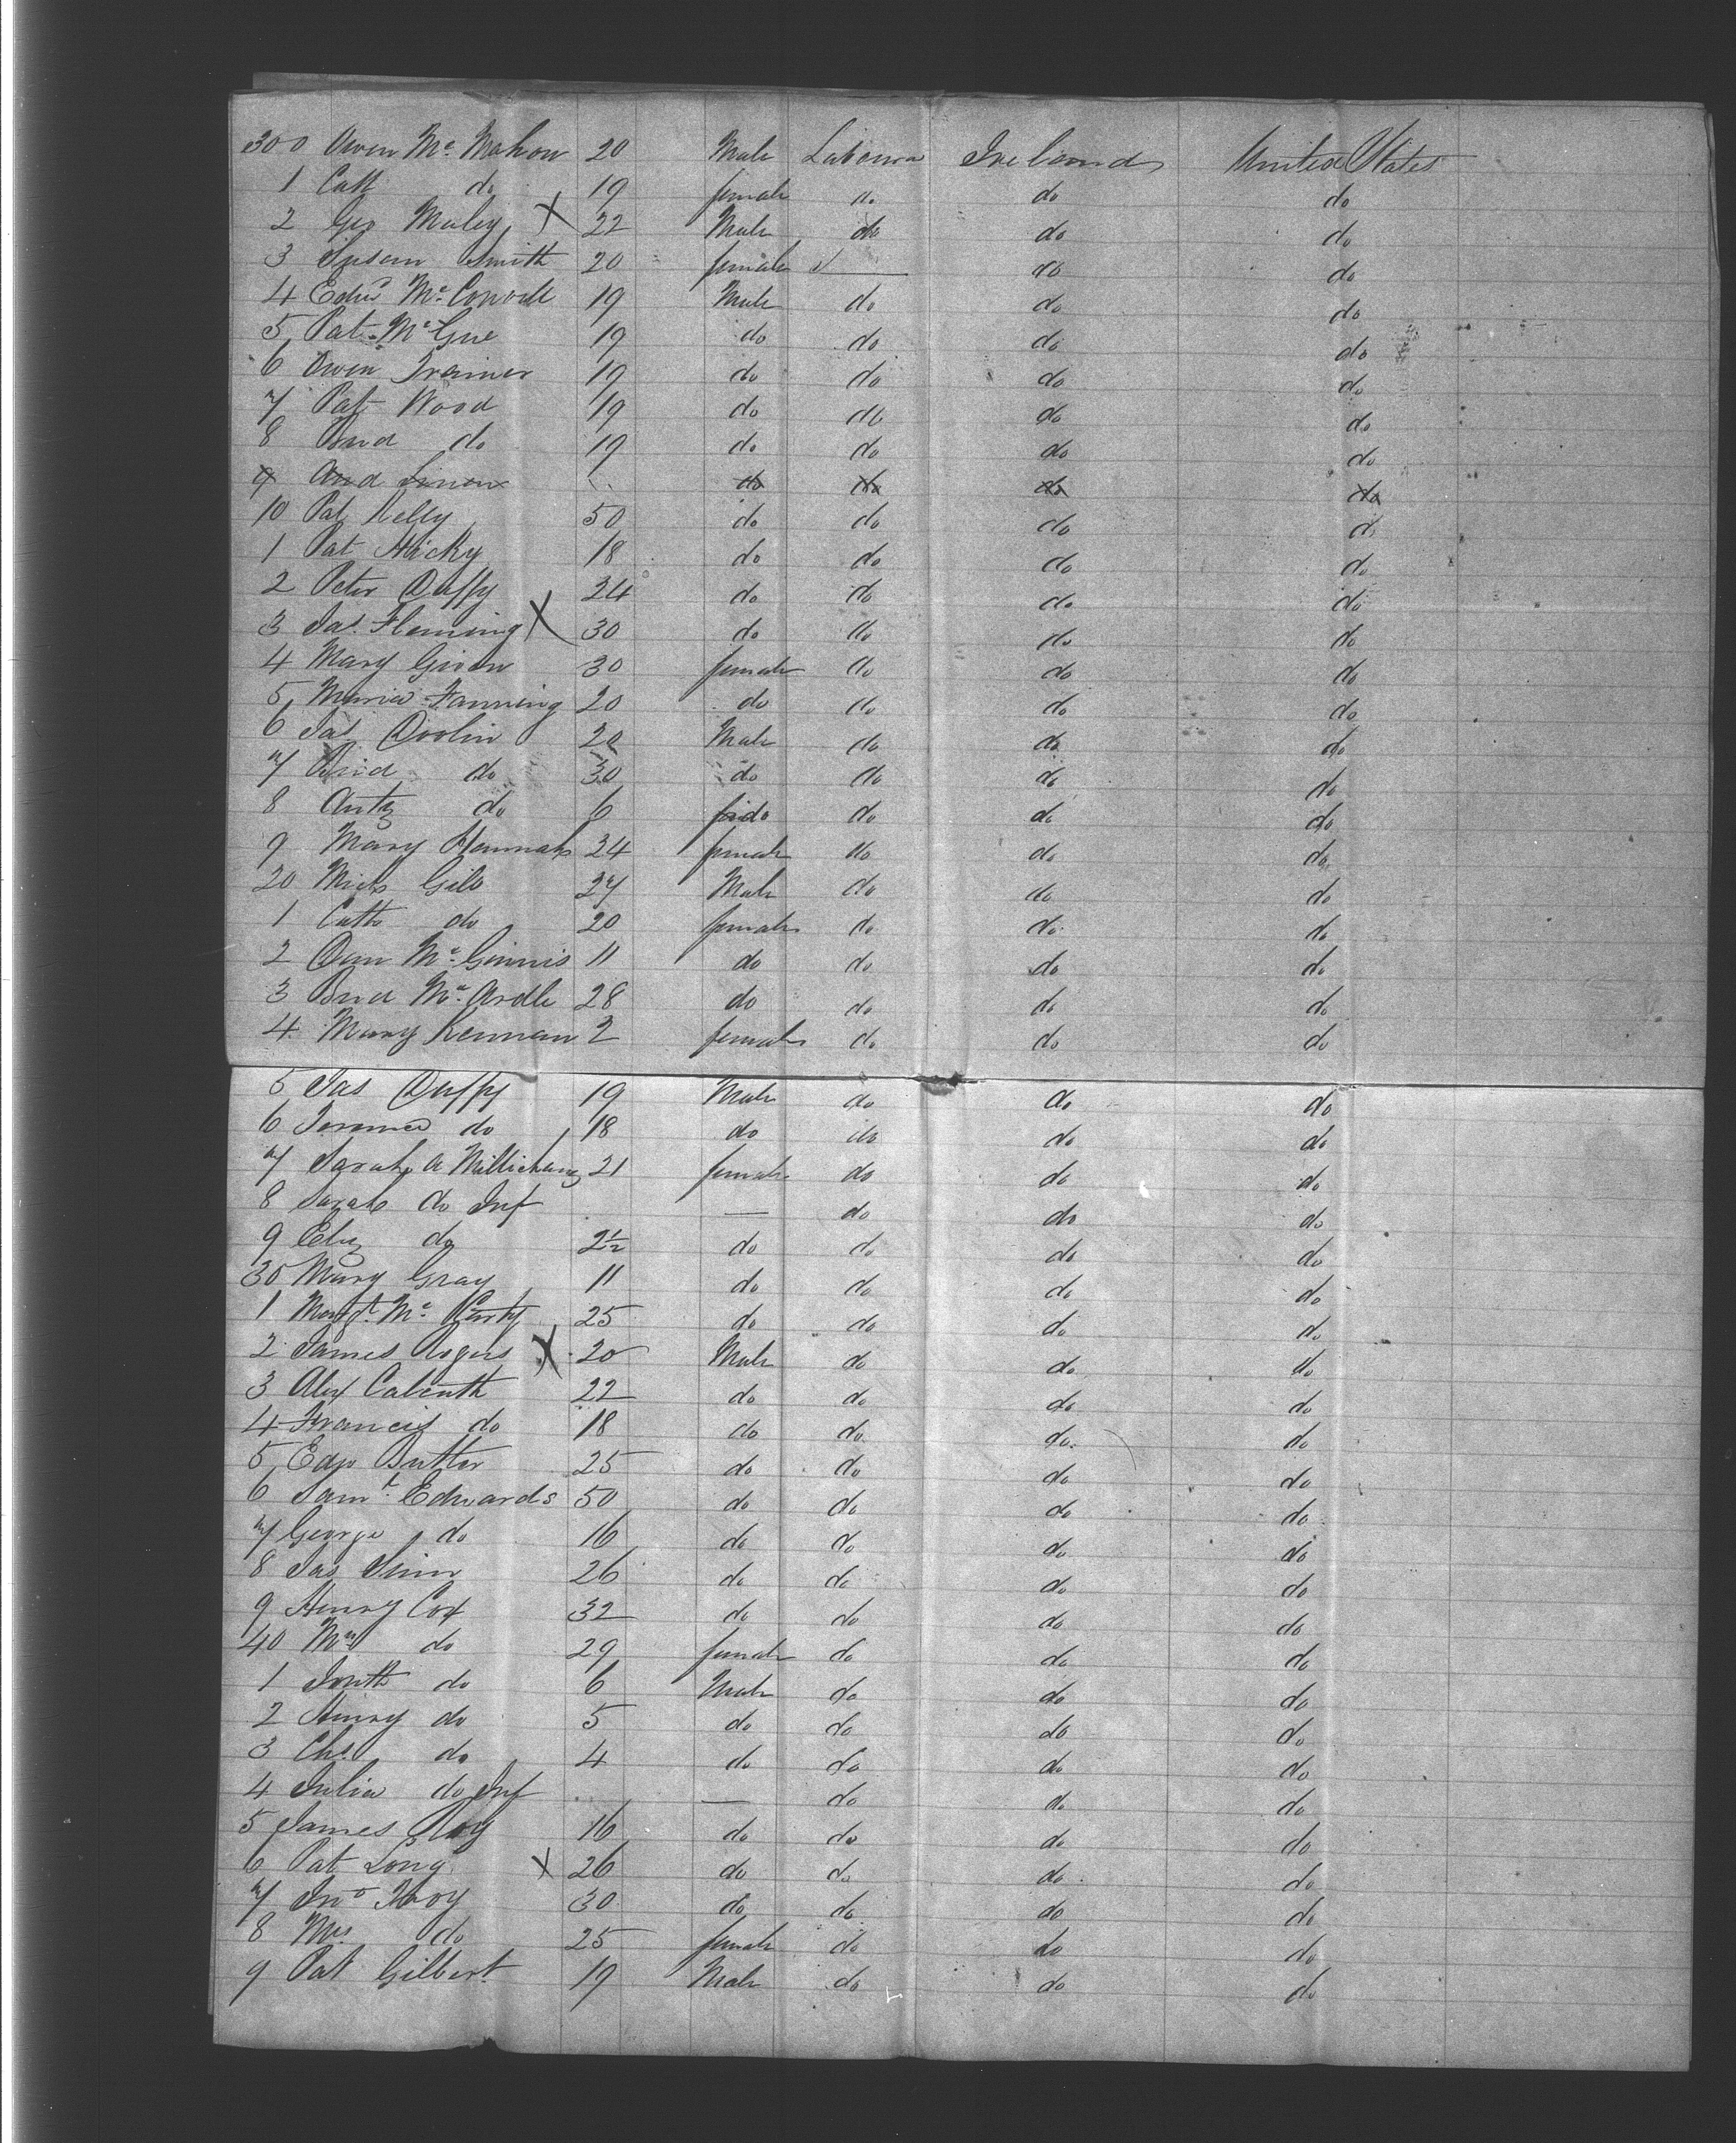 300 Owen Mc. Mahon 20 Male Laboura Ireland United States
1 Cath do 19 female do do do
2 Geo Maley X 22 Male do do do
3 Susan Smith 20 female do do
4 Edwd Mc. 19 Male do do do
5 Pat Mc Gue 19 do do do do
6 Owen Trainer 19 do do do do
7 Pat Wood 19 do do do do
8 Brid do 19 do do do do
9 And do do do do
10 Pat Kelly 50 do do do do
1 Pat Hicky 18 do do do do
2 Peter Duffy 24 do do do do
3 Jas. Fleming X 30 do do do do
4 Mary Given 30 female do do do
5 Maria Fanning 20 do do do do
6 Jas Doolin 20 Male do do do
7 Brid do 30 do do do do
8 Anty do 6 do do do do
9 Mary Hannah 24 female do do do
20 Mich Gilo 27 Male do do do
1 Cath do 20 female do do do
2 Dan Mc. Ginnis 11 do do do do
3 Brid Mc. Ardle 28 do do do do
4 Mary Kennan 2 female do do do
5 Jas Duffy 19 Male do do do
6 Terance do 18 do do do do
7 Sarah A 21 female do do do
8 Sarah do Inf — do do do
9 Eliz do 2½ do do do do
30 Mary Gray 11 do do do do
1 Margt. Mc. Carty 25 do do do do
2 James Rogers X 20 Male do do do
3 Alex 22 do do do do
4 Francis do 18 do do do do
5 Edw Butler 25 do do do do
6 Saml. Edwards 50 do do do do
7 George do 16 do do do do
8 Jas 26 do do do do
9 Henry Cox 32 do do do do
40 Mrs do 29 female do do do
1 do 6 Male do do do
2 Henry do 5 do do do do
3 Chs do 4 do do do do
4 Julia do Inf — do do do
5 James Roy 16 do do do do
6 Pat Long X 26 do do do do
7 Jno 30 do do do do
8 Mrs do 25 female do do do
9 Pat Gilbert 19 Male do do do